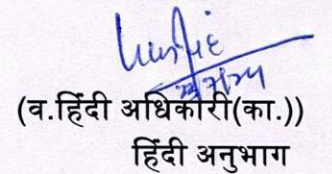 (व.हिंदी अधिकारी(का.))
हिंदी अनुभाग